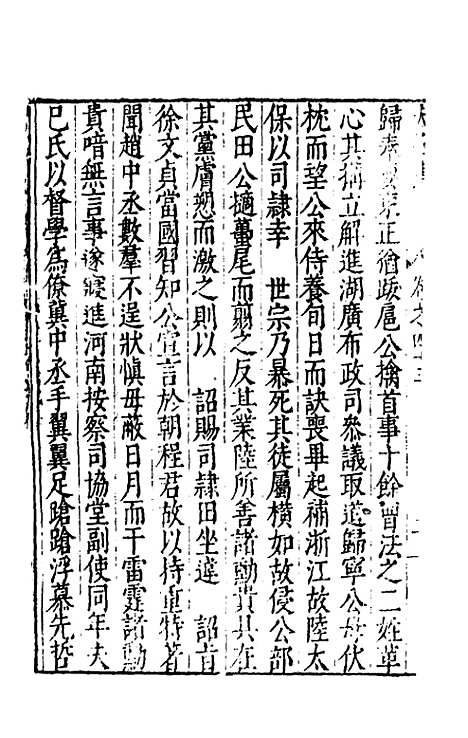 卷之四十三
歸安 正猶跋扈公擒首事十餘置法之二姓革
心其搆立解進湖廣布政司叅議取道歸寧公母伏
枕而望公來侍養旬日而訣喪畢起補浙江故陸太
保以司隷幸 世宗乃暴死其徒屬橫如故侵公部
民田公擿蠆尾而翦之反其業陸所善諸勳貴具在
其黨膚愬而激之則以 詔賜司隷田坐違 詔旨
徐文貞當國習知公宣言於朝程君故以持重特著
聞趙中丞數羣不逞狀慎毋蔽日月而干雷霆諸勳
貴喑無言事遂寢進河南按察司協堂副使同年夫
巳氏以督學為僚冀中丞手翼翼足蹌蹌浮慕先哲